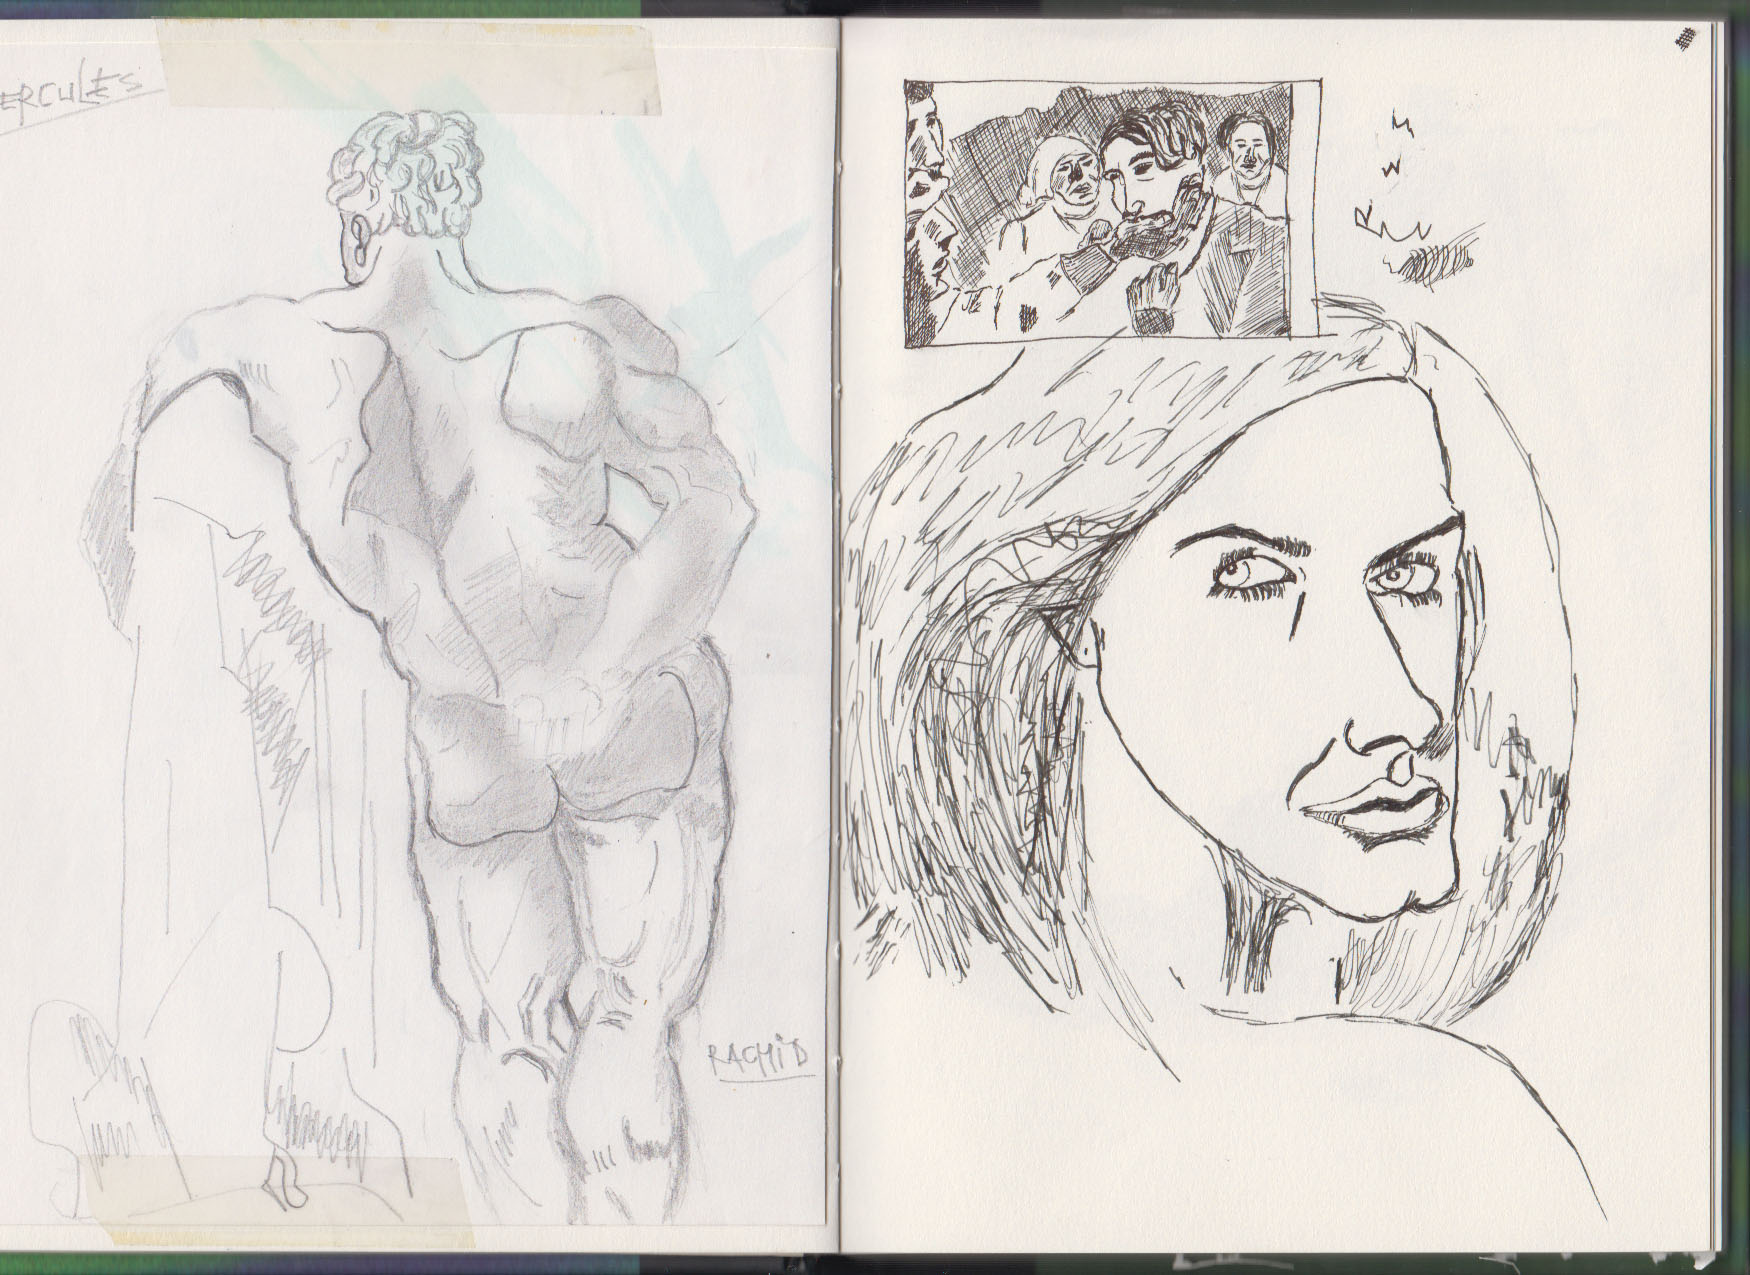 ERCULES
RACHID